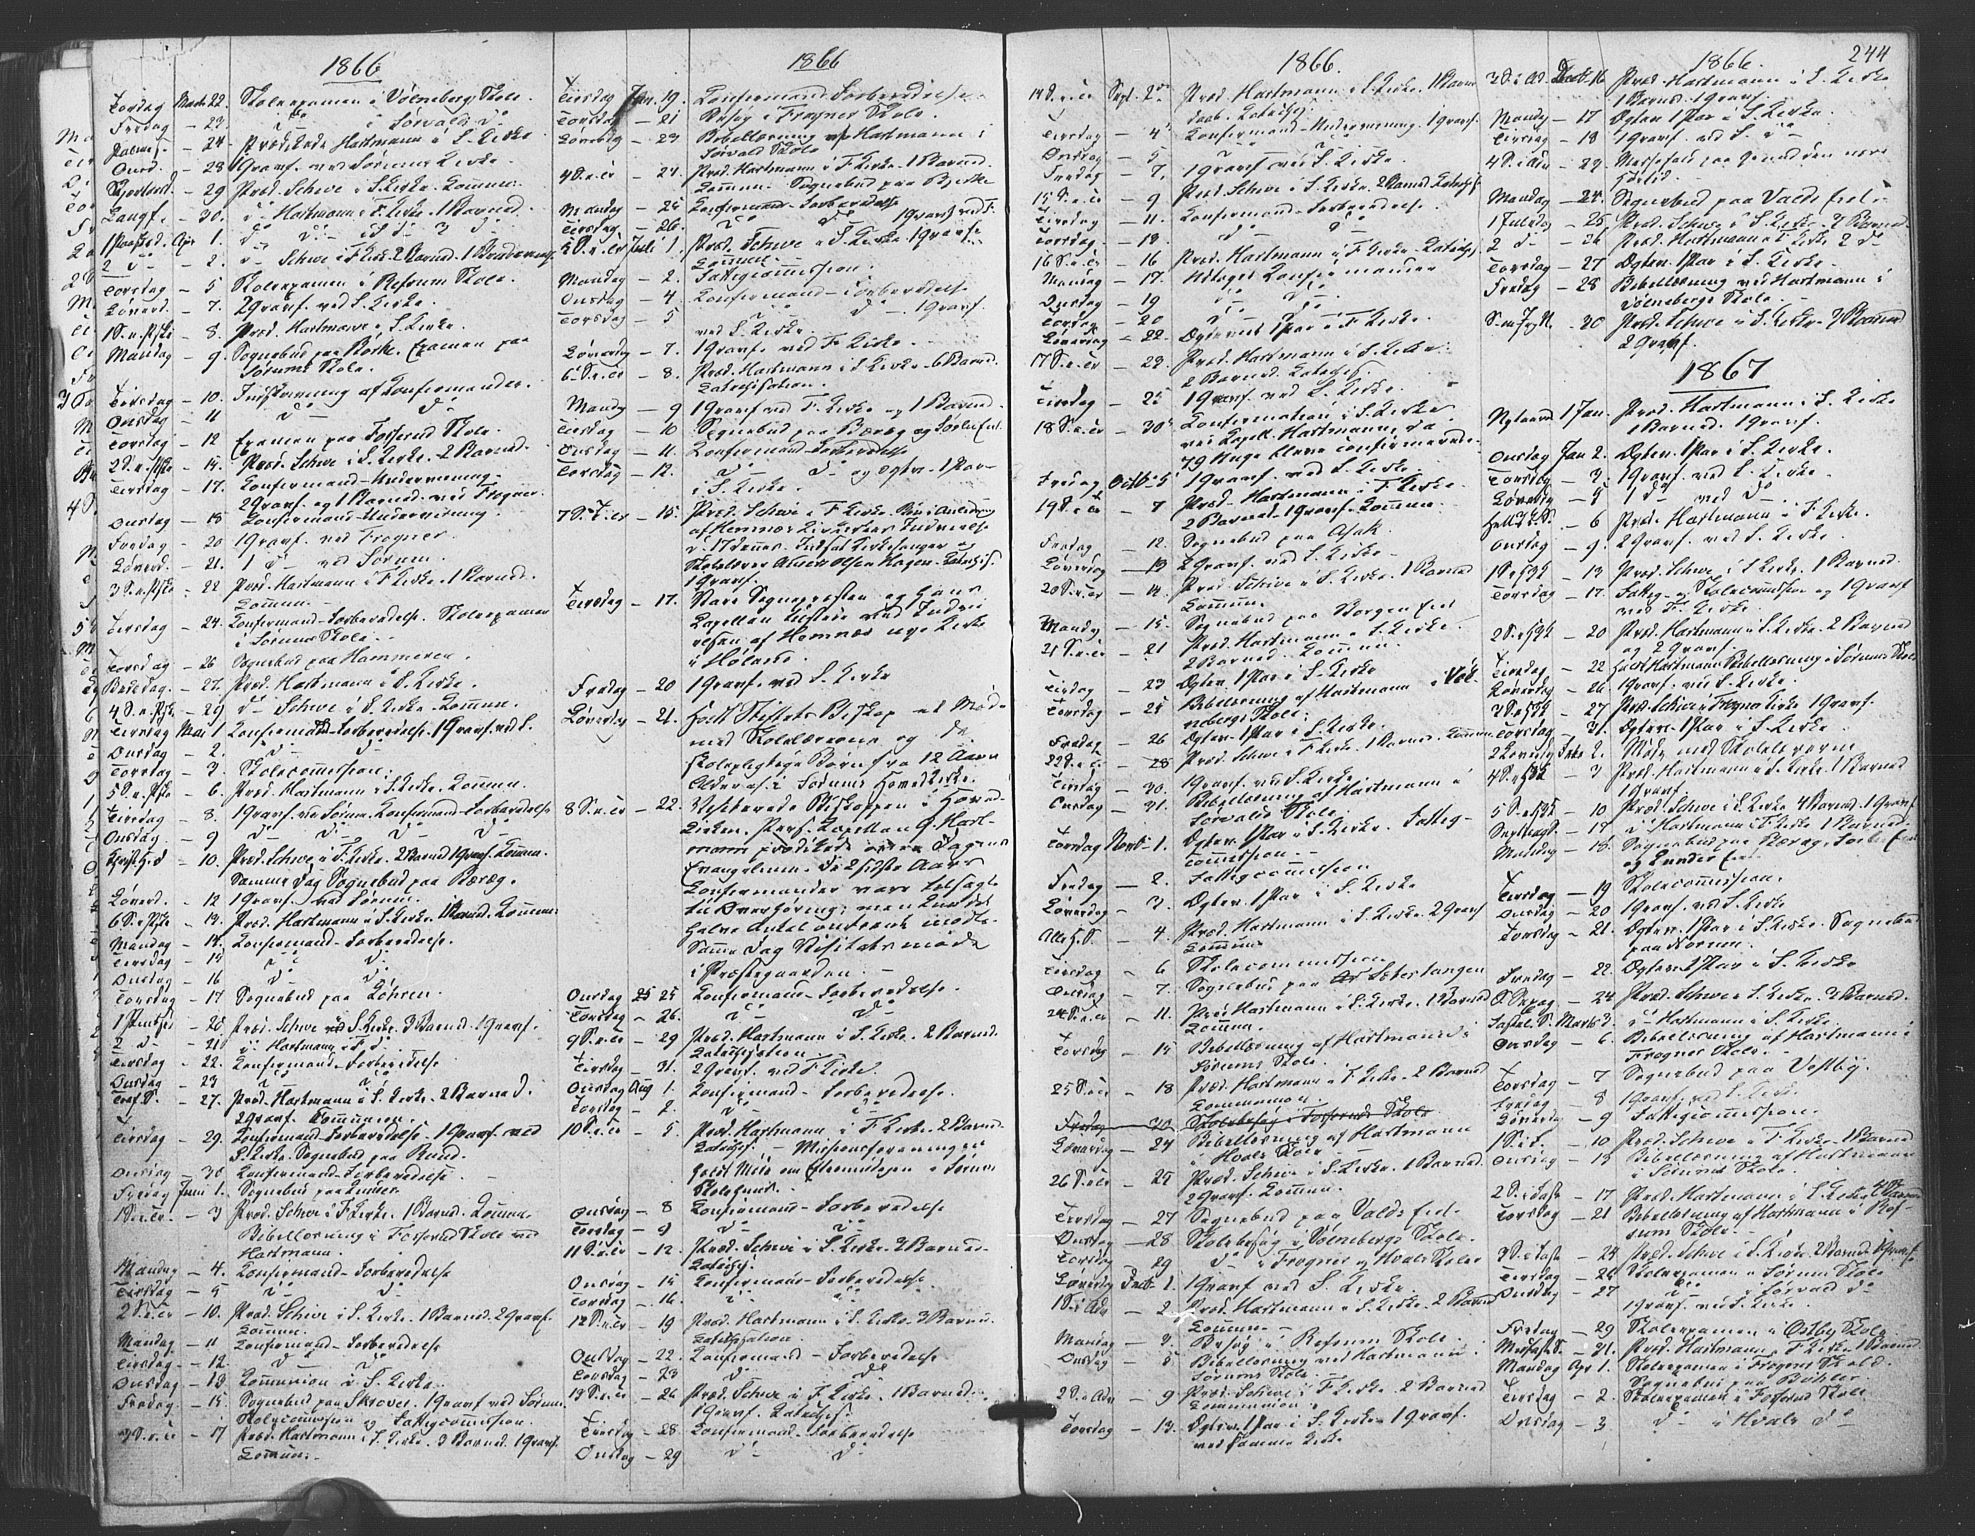 1866
Torsdag Marts 22. Skoleexamen i Vølneberg Skole.
Fredag - 23. do i Sørvald do
- 24. Prædikede Hartmann i S. Kirke
Onsd. - 28 1 Gravf. ved Sørum Kirke.
Skjertorsd. - 29 Præd. Schive i S. Kirke. Commun.
Langf. - 30. do Hartmann i F. Kirke. 1 Barned.
1 Paasked. Apr. 1. do do i S. do 3 do
2 do - 2. do Schive i F. Kirke 2 Barned.
Torsdag - 5 Skoleexamen i Refsum Skole.
Løverd. - 7. 2 Gravf. ved S. Kirke.
1 S. e. Paaske - 8. Præd. Hartmann i S. Kirke.
Mandag - 9. Sognebud paa Examen paa
Sørum Skole.
Tirsdag - 10. Indskrivning af Confirmander.
Onsdag - 11 do do
Torsdag - 12 Examen paa Fosserud Skole.
2 S. e. Paaske - 15. Præd. Schive i S. Kirke. 2 Barned.
Tirsdag - 17. Confirmand-Underviisning.
2 Gravf. og 1 Barned. ved Frogner.
Onsdag - 18 Confirmand-Underviisning.
Fredag - 20 1 Gravf. ved Frogner.
Løverd. - 21. 1 do ved Sørum.
3 S. e. Paaske - 22 Præd. Hartmann i F. Kirke. 1 Barned.
Commun.
Tirsdag - 24. Confirmand-Forberedelse. Skoleexamen
i Sørum Skole.
Torsdag - 26 Sognebud paa Hammeren.
Bededag. - 27. Præd. Hartmann i S. Kirke.
4 S. e. Paaske - 29 do Schive i S. Kirke. Commun.
Tirsdag Mai 1 Confirmand-Forberedelse. 1 Gravf. ved S.
Onsdag - 2. do do
Torsdag - 3. Skolecommission.
5 S. e. Paaske - 6. Præd. Hartmann i S. Kirke. Commun.
Tirsdag - 8. 1 Gravf. ved Sørum. Confirmand-Forberedelse
Onsdag - 9 do do do
- 10. Præd. Schive i F. Kirke. 2 Barned. 1 Gravf. Commun.
Samme Dag Sognebud paa
Løverd. - 12 1 Gravf. ved Sørum.
6 S. e. Paaske - 13. Præd. Hartmann i S. Kirke. 1 Barned. Commun.
Mandag - 14. Confirmand-Forberedelse.
Tirsdag - 15 do do
Onsdag - 16 do do
Torsdag - 17 Sognebud paa Løhren.
1 Pintsed. - 20 Præd. Schive ved S. Kirke. 3 Barned. 1 Gravf.
2 do - 21 do Hartmann i F. do
Tirsdag - 22. Confirmand-Forberedelse
Onsdag - 23 do do
Tref. S. - 27. Præd. Hartmann i S. Kirke. 2 Barned.
2 Gravf. Commun.
Tirsdag - 29. Confirmand-Forberedelse. 1 Gravf. ved
S. Kirke. Sognebud paa
Onsdag - 30 Confirmand-Forberedelse.
Fredag Juni 1. Sognebud paa
1 S. e. Tr. - 3 Præd. Schive i F. Kirke. 1 Barned. Commun.
Bibellæsning i Fosserud Skole ved
Hartmann.
Mandag - 4. Confirmand-Forberedelse
Tirsdag - 5 do do
2 S. e. Tr. - 10. Præd. Schive i S. Kirke. 1 Barned. 2 Gravf.
Commun.
Mandag - 11 Confirmand-Forberedelse
Tirsdag - 12. do do
Onsdag - 13 Communion i S. Kirke.
Fredag - 15. Sognebud paa Skrover. 1 Gravf. ved Sørum.
Skolecommission og Fattigcommission.
3 S. e. Tr. - 17 Præd. Hartmann i S. Kirke. 3 Barned. 1 Gravf.
Commun.
1866
Tirsdag Jun. 19. Confirmand Forberedelse
Torsdag - 21 Besøg i Frogner Skole.
Løverdag - 23 Bibellæsning af Hartmann i
Sørvald Skole
4 S. e. Tr. - 24. Præd. Hartmann i F. Kirke. 1 Barned.
Commun. Sognebud paa Bjerke
Mandag - 25 Confirmand-Forberedelse
Tirsdag - 26. do do 1 Gravf. ved F.
5 S. e. Tr. Juli 1. Præd. Schive i S. Kirke. 1 Gravf.
Commun.
Mandag - 2. Fattigcommission.
Onsdag - 4 Confirmand-Forberedelse
Torsdag - 5 do do 1 Gravf.
ved S. Kirke.
Løverdag - 7. 1 Gravf. ved F. Kirke.
6 S. e. Tr. - 8. Præd. Hartmann i S. Kirke. 6 Barned.
Catechisation.
Mandag - 9 1 Gravf. ved F. Kirke og 1 Barned.
Tirsdag - 10 Sognebud paa og
Onsdag - 11. Confirmand-Forberedelse
Torsdag - 12. do do og Ægtev. 1 Par
i S. Kirke.
7 S. e. Tr. - 15. Præd. Schive i F. Kirke. i Anledning
af Hemnæs Kirkes Indvielse
d. 17 dennes. Indsat Kirkesanger og
Skolelærer Olsen Hagen. Catechis.
1 Gravf.
Tirsdag - 17. Vare Sognepresten og Hans
Capellan tilstede ved Indvi-
elsen af Hemnæs nye Kirke
i Høland.
Fredag - 20 1 Gravf. ved S. Kirke
Løverdag - 21. Holdt Stiftets Biskop et Møde
med Skolelærerne og de
skolepligtige Børn fra 12 Aars
Alder af i Sørum Hovedkirke.
8 S. e. Tr. - 22. Visiterede Biskoppen i Hoved-
kirken. Pers. Capellan G. Hart-
mann prædikede over Dagens
Evangelium. De 2 sidste Aars
Confirmander vare tilsagte
til Overhøring; men kun det
halve Antal omtrent mødte.
Samme Dag Visitatsmøde
i Præstegaarden.
Onsdag 25 25 Confirmand-Forberedelse.
Torsdag - 26. do do
9 S. e. Tr. - 29 Præd. Hartmann i S. Kirke. 2 Barned.
Catechisation
Tirsdag - 31. 2 Gravf. ved F. Kirke.
Onsdag Aug 1. Confirmand-Forberedelse.
Torsdag - 2. do do
10 S. e. Tr. - 5. Præd. Hartmann i F. Kirke. 2 Barned.
Catechis. - Missionsforeningen
holdt Møde om Eftermiddagen i Sørum
Skolehuus.
Onsdag - 8 Confirmand-Forberedelse
Torsdag - 9 do do
11 S. e. Tr. - 12. Præd. Schive i S. Kirke. 3 Barned.
Catechis.
Onsdag - 15 Confirmand-Forberedelse.
Torsdag - 16. do do
12 S. e. Tr. - 19 Præd. Hartmann i S. Kirke. 3 Barned.
Catechisation.
Onsdag - 22. Confirmand-Forberedelse
Torsdag - 23 do do
13 S. e. Tr. - 26 Præd. Schive i F. Kirke. 1 Barned.
1 Gravf. Catechis.
Tirsdag - 28. Confirmand-Forberedelse
Onsdag - 29 do do
1866.
14 S. e. Tr. Sept. 2. Præd. Hartmann i S. Kirke. 1 Barne-
daab. Catechis.
Tirsdag - 4 Confirmand-Underviisning. 1 Gravf.
Onsdag - 5 do do
Fredag - 7. 1 Gravf. ved S. Kirke.
15 S. e. Tr. - 9 Præd. Schive i S. Kirke. 2 Barned. Catechis.
Tirsdag - 11. Confirmand-Forberedelse.
Torsdag - 13. do do
16 S. e. Tr. - 16 Præd. Hartmann i F. Kirke. Catechis.
Mandag - 17. Udtoges Confirmander
Onsdag - 19 do do
Torsdag - 20 do do
Løverdag - 22. Ægteviet 1 Par i F. Kirke.
17 S. e. Tr. - 23. Præd. Hartmann i S. Kirke.
2 Barned. Catechis.
Tirsdag - 25 1 Gravf. ved S. Kirke.
18 S. e. Tr. - 30 Confirmation i S. Kirke
ved Capell. Hartmann, da
79 Unge bleve confirmerede.
Fredag Octb. 5 1 Gravf. ved S. Kirke.
19 S. e. Tr. - 7 Præd. Hartmann i F. Kirke.
2 Barned. 1 Gravf. Commun.
Fredag - 12. Sognebud paa Asak.
Løverdag - 13 2 Gravf. ved S. Kirke.
20 S. e. Tr. - 14. Præd. Schive i S. Kirke. 1 Barned
Commun.
Mandag - 15. Sognebud paa Borgen
21 S. e. Tr. - 21 Præd. Hartmann i S. Kirke.
2 Barned. Commun.
Tirsdag - 23 Ægtev. 1 Par i S. Kirke
Torsdag - 25 Bibellæsning af Hartmann i Vøl-
nebergs Skole.
Fredag - 26 Ægtev. 1 Par i S. Kirke.
22 S. e. Tr. - 28 Præd. Schive i F. Kirke. 1 Barned. Commun.
Tirsdag - 30. 1 Gravf. ved S. Kirke.
Onsdag - 31. Bibellæsning af Hartmann i
Sørvalds Skole.
Torsdag Novb. 1. Ægtev. 1 Par i S. Kirke. Fattig-
commission.
Fredag - 2. Fattigcommission
Løverdag - 3. Ægtev. 1 Par i S. Kirke
Alle H. S. - 4 Præd. Hartmann i S. Kirke. 2 Gravf
Commun.
Tirsdag - 6 Skolecommission
Onsdag - 7. Sognebud paa
24 S. e. Tr. - 11. Præd. Hartmann i S. Kirke. 1 Barned.
Commun.
Torsdag - 15 Bibellæsning af Hartmann i
Sørum Skole.
25 S. e. Tr. - 18 Præd. Hartmann i F. Kirke. 2 Barned
Communion.
Fredag - 30 Skolebesøg i Fosserud Skole
Løverdag - 24 Bibellæsning af Hartmann
i Hvals Skole.
26 S. e. Tr. - 25 Præd. Schive i S. Kirke. 1 Barned.
2 Gravf. Commun.
Tirsdag - 27 Sognebud paa Valds Eie.
Onsdag - 28 Skolebesøg i Vølnebergs Skole.
Torsdag - 29 do i Frogner og Hvals Skoler
Løverdag Decb. 1. 1 Gravf. ved S. Kirke.
1 S. i Adv. - 2. Præd. Hartmann i S. Kirke. 2 Barned
Commun.
Mandag - 3. Besøg i Refsum Skole.
Onsdag - 5 Bibellæsning ved Hartmann i
Sørum Skole.
2 S. i Adv. - 9 Præd. Schive i F. Kirke. 2 Barned
Communion.
Torsdag - 13. Ægtev. 1 Par i S. Kirke 1 Gravf.
ved samme Kirke
1866. 244
3 S. i Ad. Decb. 16 Præd. Hartmann i S. Kirke
1 Barned. 1 Gravf.
Mandag - 17 Ægtev. 1 Par i S. Kirke.
Tirsdag - 18 1 Gravf. ved S. do
4 S. i Adv. - 23 Messefald paa Grund den
Mandag - 24. Sognebud paa Valds Eie.
1 Juledag - 25 Præd. Schive i S. Kirke 2 Barned.
2 do - 26 Præd. Hartmann i F. Kirke 2 do
Torsdag - 27 Ægtev. 1 Par i S. Kirke.
Fredag - 28 Bibellæsning ved Hartmann i
Vølnebergs Skole.
S. e. Jul. - 30 Præd. Schive i S. Kirke. 3 Barned
2 Gravf.
1867
Nytaarsd. 1 Jan. Præd. Hartmann i S. Kirke
1 Barned. 1 Gravf.
Onsdag Jan 2. Ægtev. 1 Par i S. Kirke.
Torsdag - 3 1 Gravf. ved S. Kirke.
Løverdag - 5 1 do ved do
Hell. 3 K. S. - 6 Præd. Hartmann i F. Kirke.
Onsdag - 9. 2 Gravf. ved S. Kirke.
1 S. e. H3K. - 13 Præd. Schive i S. Kirke. 1 Barned.
Torsdag - 17. Fattig- og Skolecommission og 1 Gravf
ved F. Kirke
2 S. e. H3K. - 20 Præd. Hartmann i S. Kirke. 2 Barned
og 2 Gravf.
Tirsdag - 22 Holdt Hartmann Bibellæsning i Sørum Skole
Løverdag - 26 1 Gravf. ved S. Kirke.
3 S. e. H3K. - 27 Præd. Schive i Frogner Kirke 1 Gravf.
Torsdag - 31. Ægtev. 1 Par i S. Kirke
Løverdag Febr. 2. Møde med Skolelærerne
4 S. e. H3K. - 3 Præd. Hartmann i S. Kirke. 1 Barned
1 Gravf.
5 S. e. H3K. - 10 Præd. Schive i S. Kirke 4 Barned. 1 Gravf
Septuag. S. - 17 do Hartmann i F. Kirke. 1 Barned.
Mandag - 18. Sognebud paa
og Lunder Eie.
Tirsdag - 19 Skolecommission.
Onsdag - 20 1 Gravf. ved S. Kirke
Torsdag - 21. Ægtev. 1 Par i S. Kirke. Sognebud
paa Norum.
Fredag - 22. Ægtev. 1 Par i S. Kirke
S. Sexag. - 24 Præd. Schive i S. Kirke. 3 Barned.
Fastel. S. Marts 3. do Hartmann i S. Kirke.
Onsdag - 6. Bibellæsning af Hartmann i
Frogner Skole.
Torsdag - 7 Sognebud paa Vestby.
Fredag - 8 1 Gravf. ved S. Kirke.
Løverdag - 9 Fattigcommission.
1 S. i F. - 10 Præd. Schive i F. Kirke. 1 Barned
Onsdag - 13 Bibellæsning af Hartmann
i Sørum Skole.
2 S. i Faste - 17 Præd. Hartmann i S. Kirke 4 Barned
Torsdag - 21 Bibellæsning af Hartmann i Ref-
sum Skole.
3 S. i Faste - 24 Præd. Schive i S. Kirke. 2 Barned. 1 Gravf.
Tirsdag - 26 Skoleexamen i Sørum Skole
Onsdag - 27 do i Sørvald do
1 Gravf. ved S. Kirke.
Fredag - 29 Skoleexamen i Østby Skole
Midfaste S. - 31. Præd. Hartmann i F. Kirke 1 Barned
Mandag Apr 1. Skoleexamen i Frogner Skole.
Sognebud paa Bøhler.
Tirsdag - 2. Skoleexamen i Fosserud Skole
Onsdag - 3 do i Hvals do